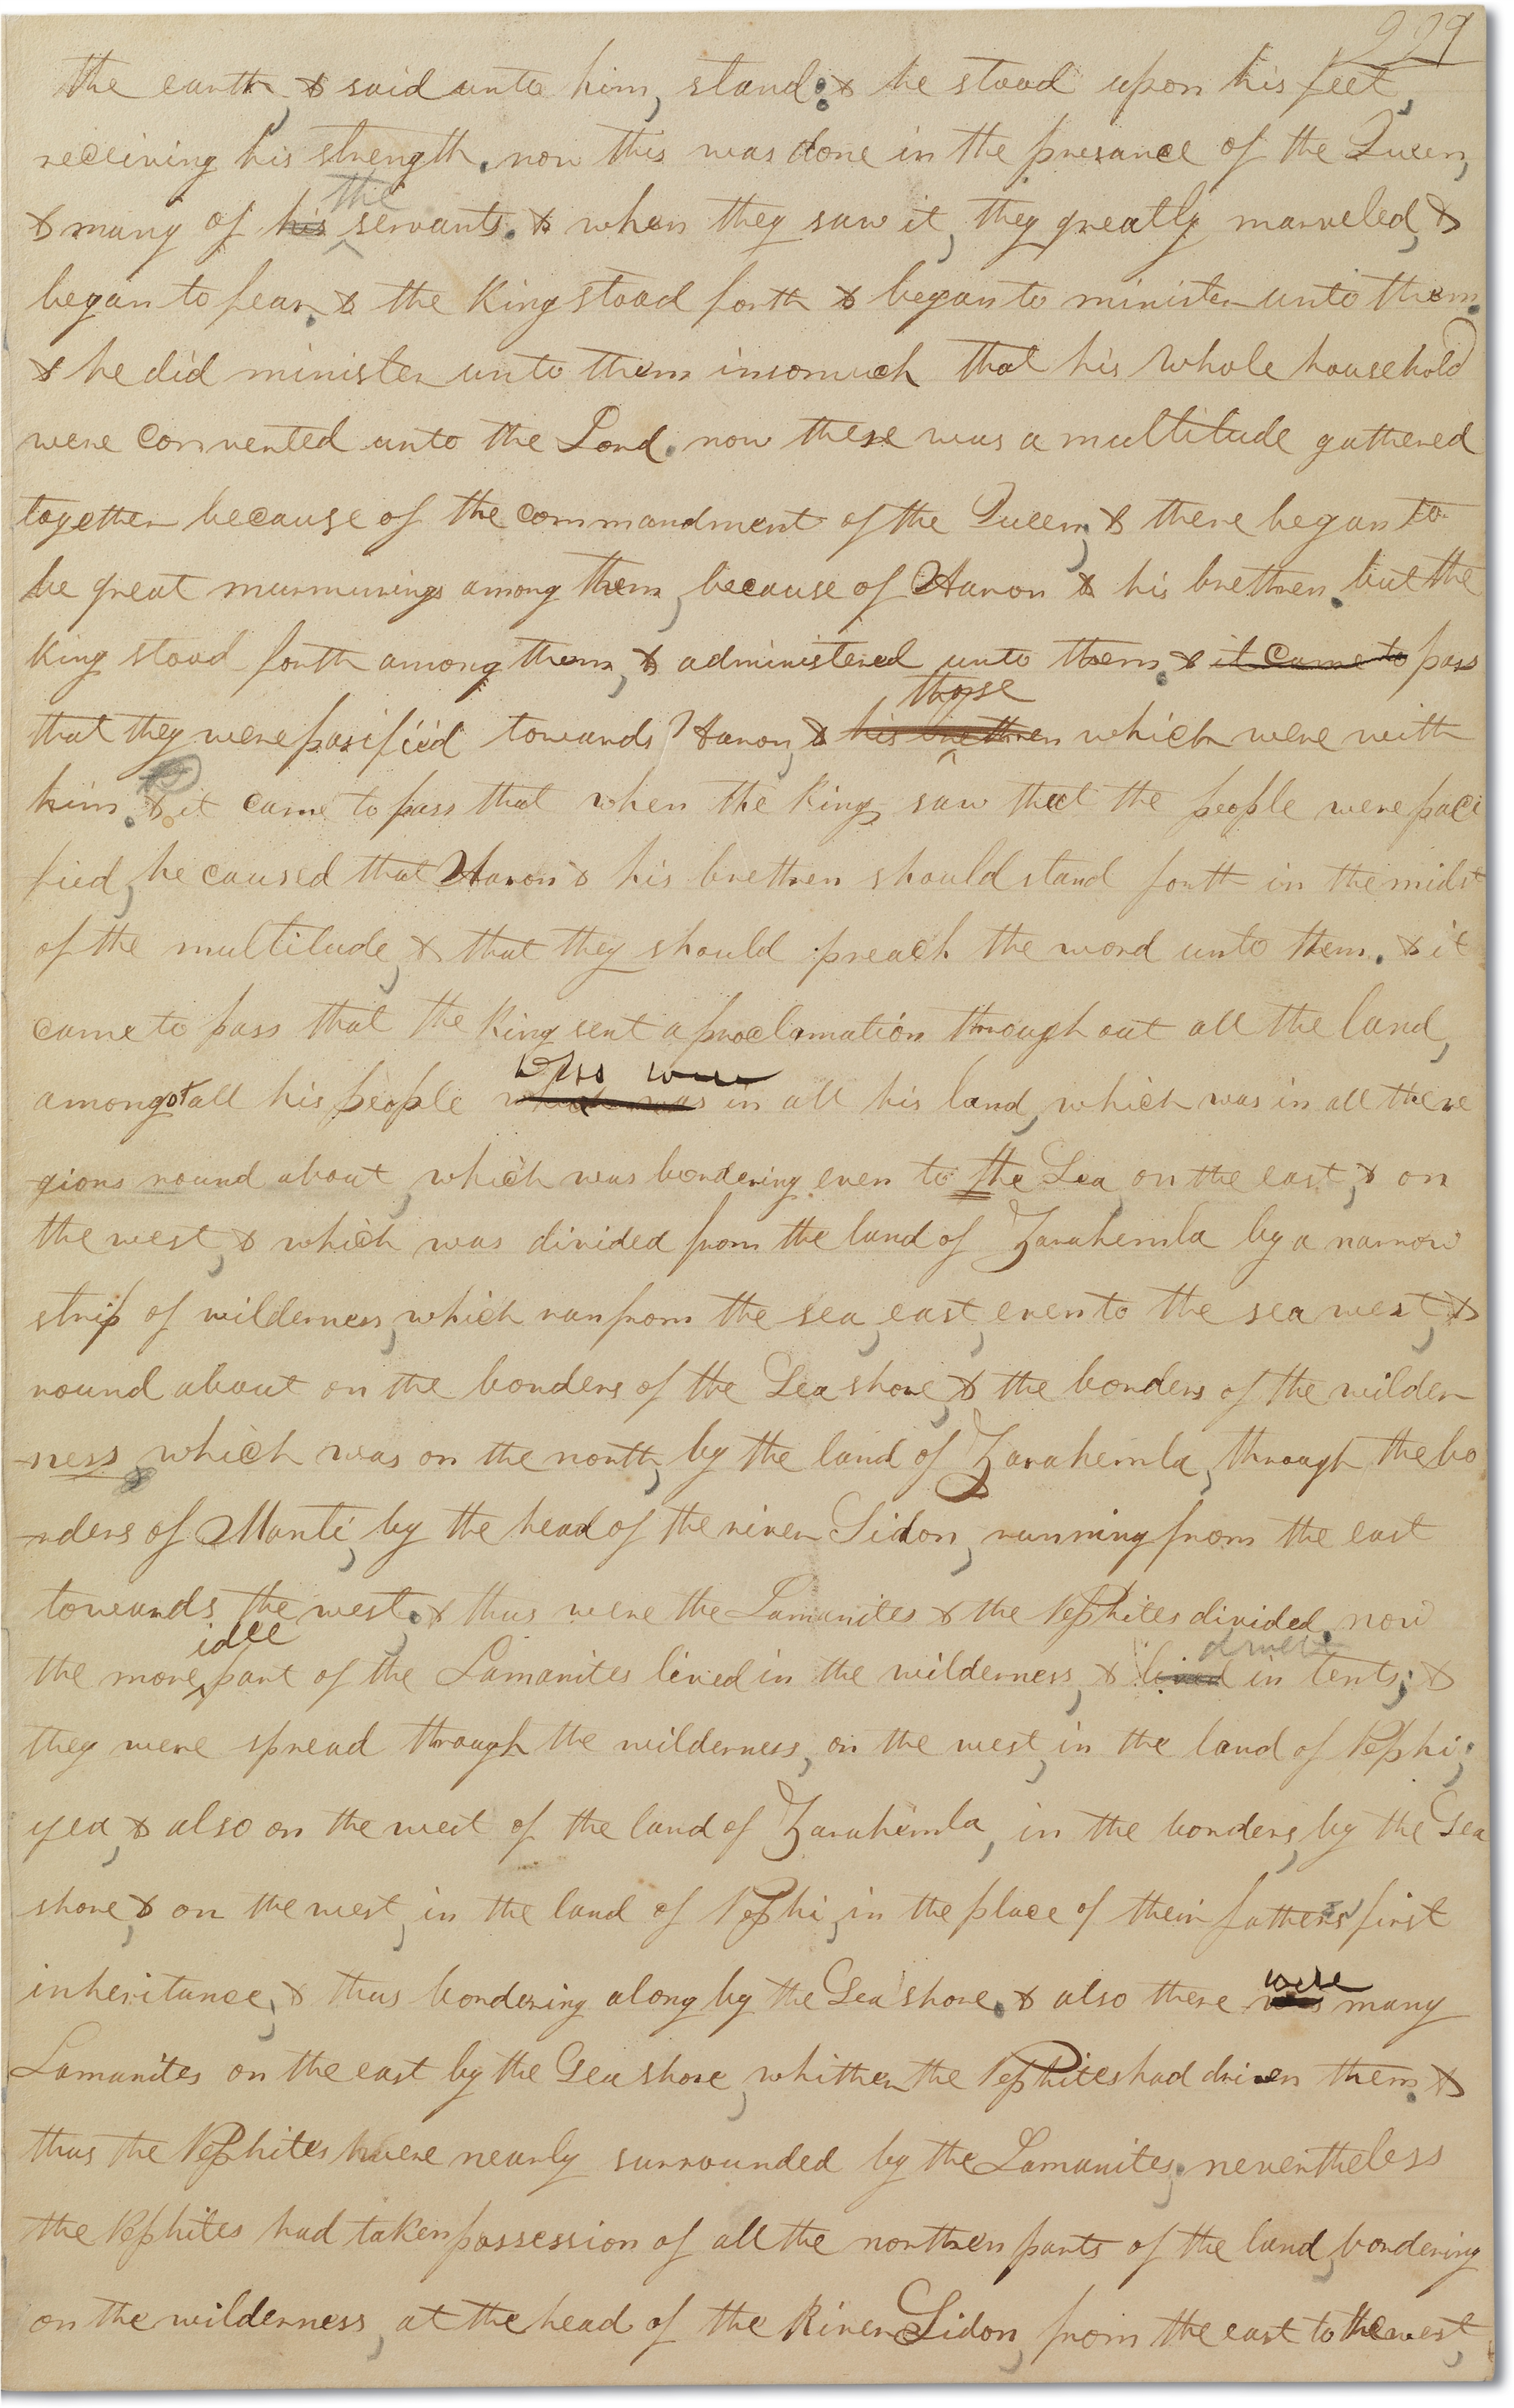 229
the earth, & said unto him, stand; & he stood upon his feet,
receiving his strength. now this was done in the presance of the Queen,
the
& many of his servants. & when they saw it, they greatly marveled, &
began to fear. & the King stood forth & began to minister unto them.
& he did minister unto them insomuch that his whole household
were converted unto the Lord. now there was a multitude gathered
together because of the commandment of the Queen, & there began to
be great murmurings among them, because of Aaron & his brethren. but the
King stood forth among them, & administered unto them. & it came to pass
those
that they were pasified towards Aaron, & his brethren which were with
him. & it came to pass that when the King saw that the people were paci
fied, he caused that Aaron & his brethren should stand forth in the midst
of the multitude, & that they should preach the word unto them. & it
came to pass that the King sent a proclamation throughout all the land,
who were
amongst all his people which was in all his land, which was in all the re
gions round about, which was bordering even to the Sea on the east, & on
the west, & which was divided from the land of Zarahemla by a narrow
strip of wilderness, which ran from the sea, east, even to the sea west, &
round about on the borders of the Sea shore, & the borders of the wilder
ness which was on the north, by the land of Zarahemla, through the bo
rders of Manti, by the head of the river Sidon, running from the east
towards the west. & thus were the Lamanites & the Nephites divided. now
idle dwelt
the more part of the Lamanites lived in the wilderness, & lived in tents; &
they were spread through the wilderness, on the west, in the land of Nephi;
yea, & also on the west of the land of Zarahemla, in the borders, by the Sea
shore, & on the west, in the land of Nephi, in the place of their fathers first
inheritance, & thus bordering along by the Sea shore. & also there
were
was many
Lamanites on the east by the Sea shore, whither the Nephites had driven them. &
thus the Nephites were nearly surrounded by the Lamanites; nevertheless
the Nephites had taken possession of all the northern parts of the land, bordering
on the wilderness, at the head of the River Sidon, from the east to the west,